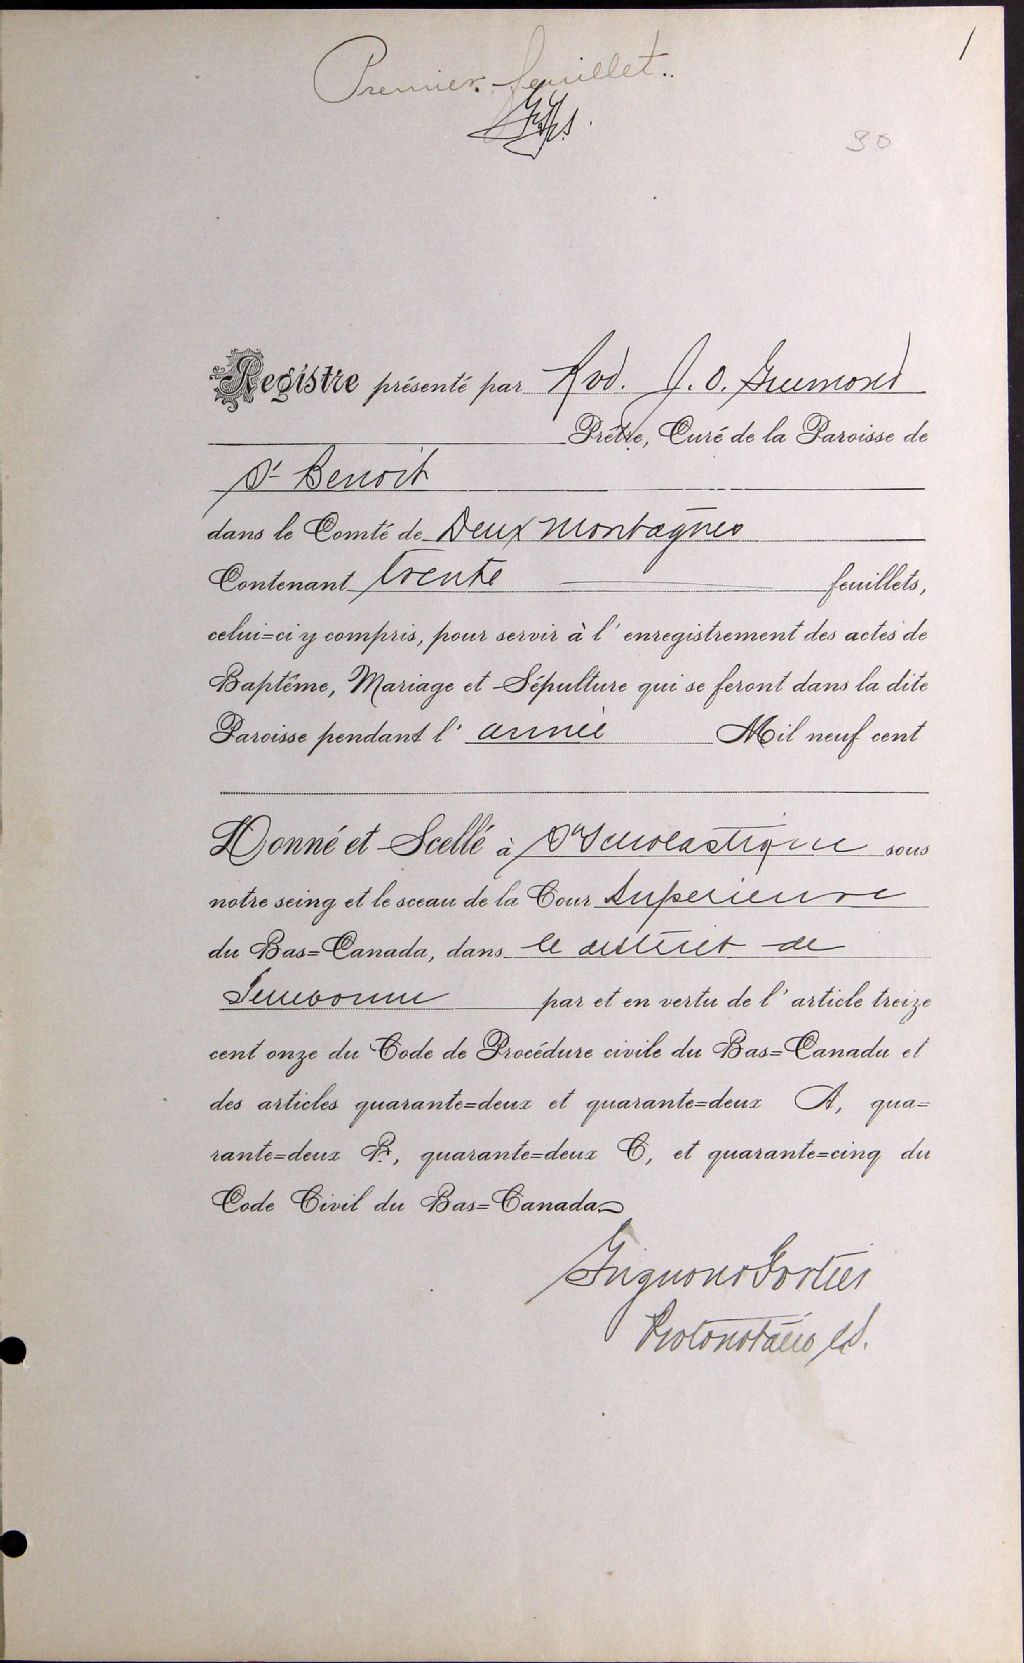 1
Premier feuillet.
30
Registre présenté par Rvd. J. O. Guimond
Prêtre, Curé de la Paroisse de
St Benoit
dans le Comté de Deux montagnes
Contenant trente feuillets,
celui=ci y compris, pour servir à l'enregistrement des actes de
Baptême, Mariage et Sépulture qui se feront dans la dite
Paroisse pendant l'année Mil neuf cent
Donné et Scellé à Ste Scholastique sous
notre seing et le sceau de la Cour Supérieure
du Bas=Canada, dans le district de
Terrebonne par et en vertu de l'article treize
cent onze du Code de Procédure civile du Bas=Canada et
des articles quarante=deux et quarante=deux A, qua=
rante=deux B, quarante=deux C, et quarante=cinq du
Code Civil du Bas=Canada
Grignon & Fortier
Protonotaire C.S.